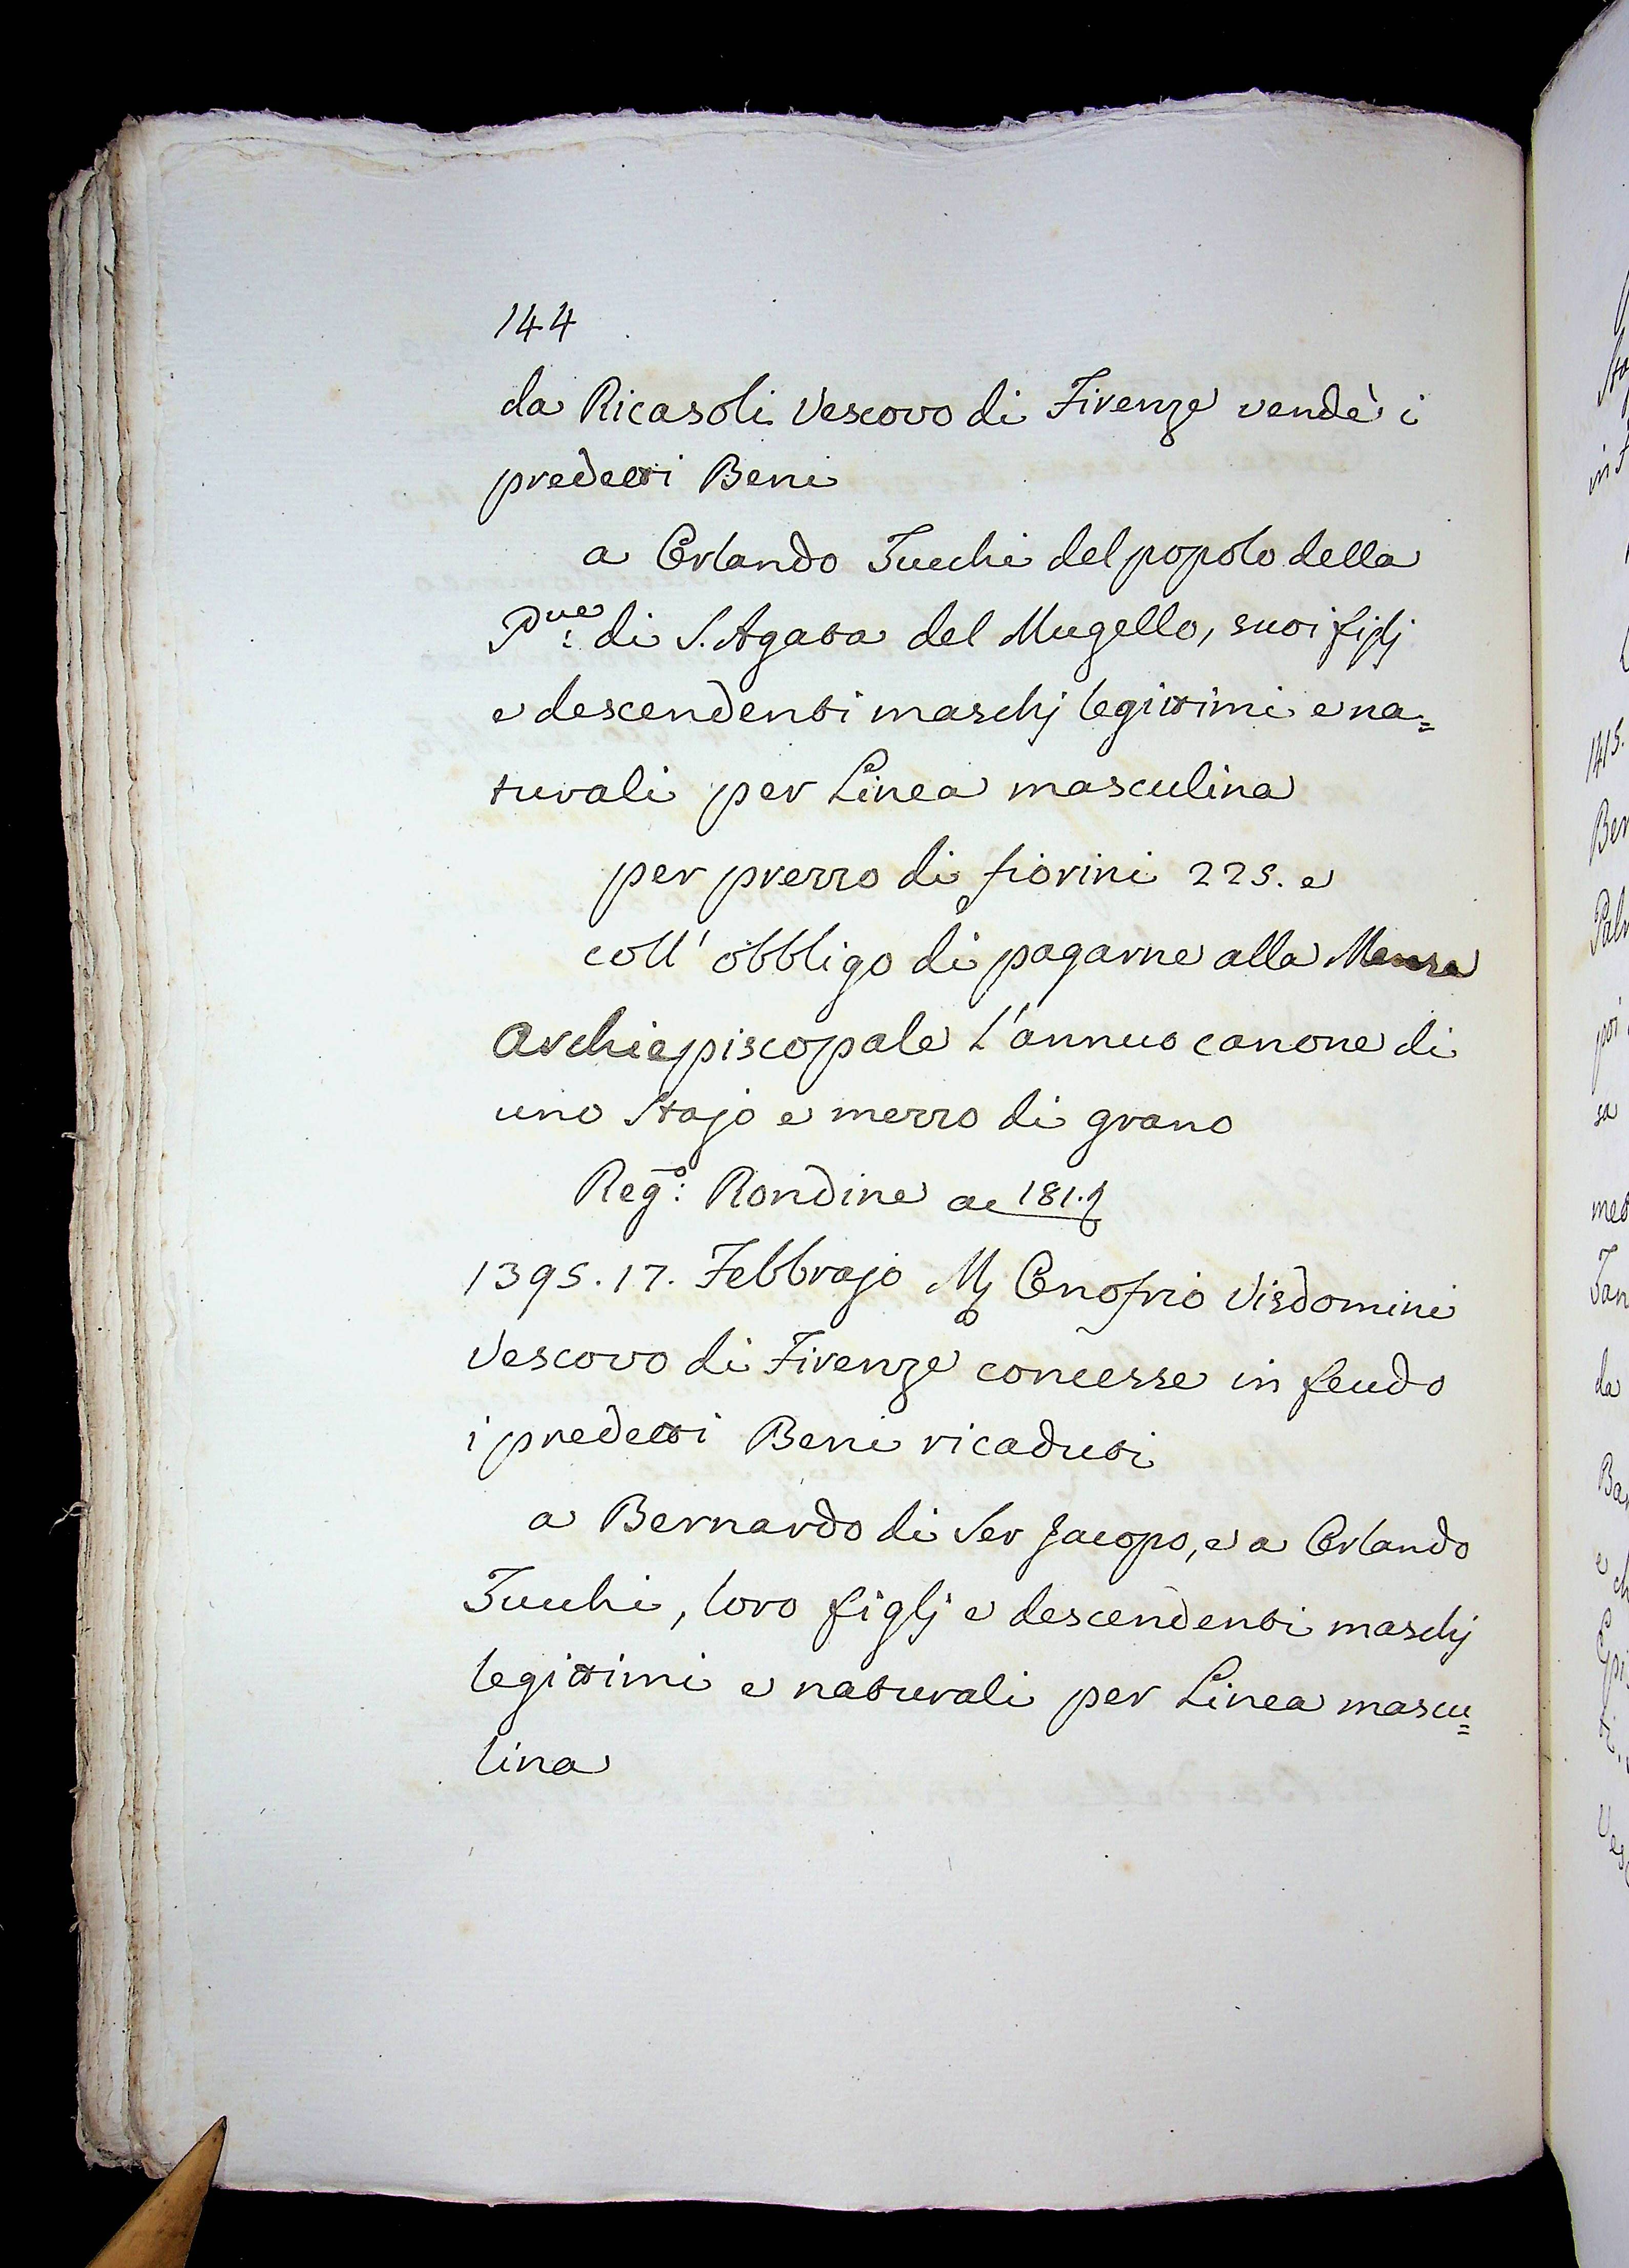 144
da Ricasoli Vescovo di Firenze vendè i
predetti Beni
a Orlando Tucchi del popolo della
P.ve di S. Agata del Mugello, suoi figlj
e descendenti maschj legittimi e na=
turali per Linea masculina
per prezzo di fiorini 225. e
coll' obbligo di pagarne alla Mensa
Archiepiscopale l'annuo canone di
uno Stajo e mezzo di grano
Reg.o: Rondine ac 181.
1395. 17. Febbrajo Mg Onofrio Visdomini
Vescovo di Firenze concesse in feudo
i predetti Beni ricaduti
a Bernardo di Ser Jacopo, e a Orlando
Tucchi, loro figlj e descendenti maschj
legittimi e naturali per Linea mascu=
lina